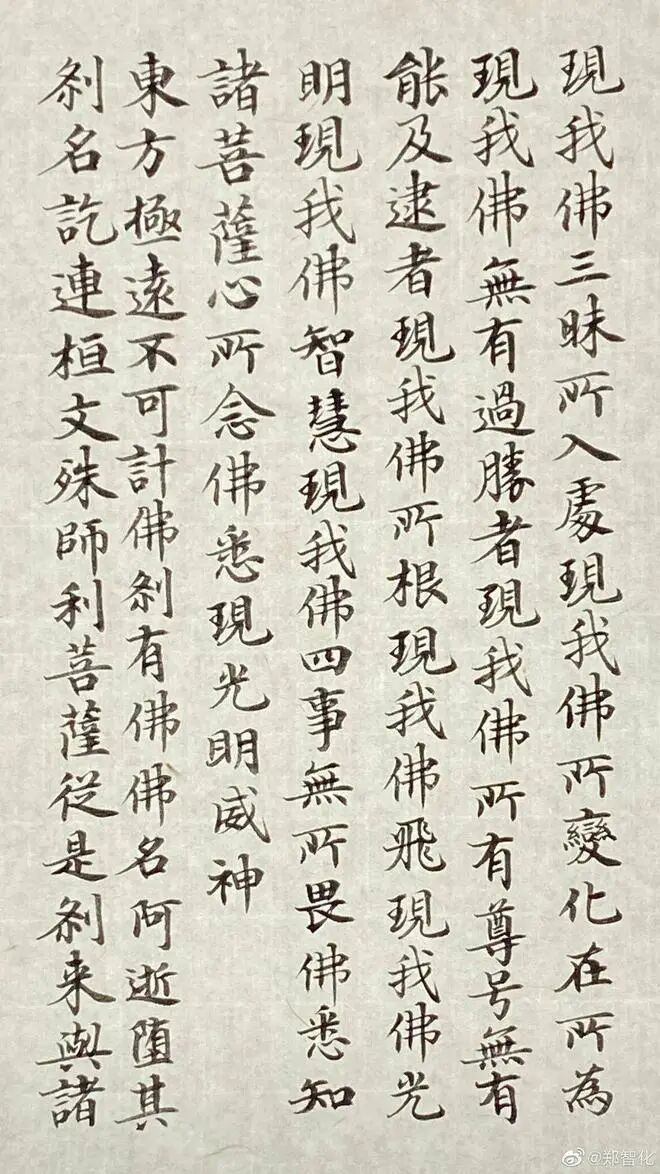 現我佛三昧所入處現我佛所變化在所為
現我佛無有過勝者現我佛所有尊号無有
能及逮者現我佛所根現我佛飛現我佛光
明現我佛智慧現我佛四事無所畏佛悉知
諸菩薩心所念佛悉現光明威神
東方極遠不可計佛刹有佛佛名阿逝堕其
刹名訖連桓文殊師利菩薩從是刹来與諸
@郑智化